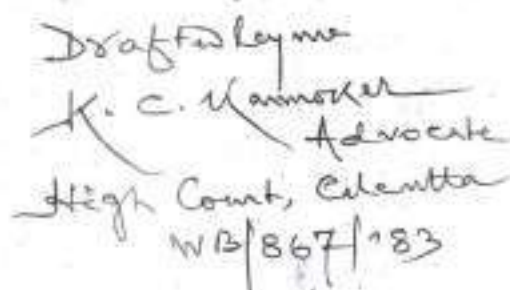 Drafted by me
K. C. Karmoker
Advocate
High Court, Calcutta
WB/867/'83